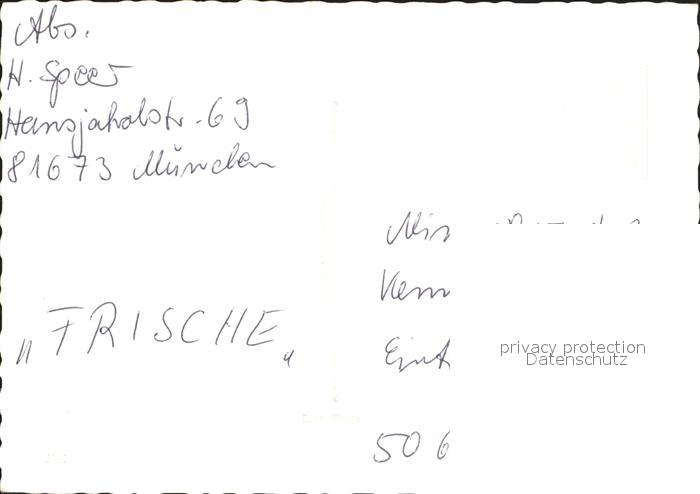 Abs.
H. Speer
Hansjakobstr. 69
81673 München
„FRISCHE“
50 6
privacy protection
Datenschutz